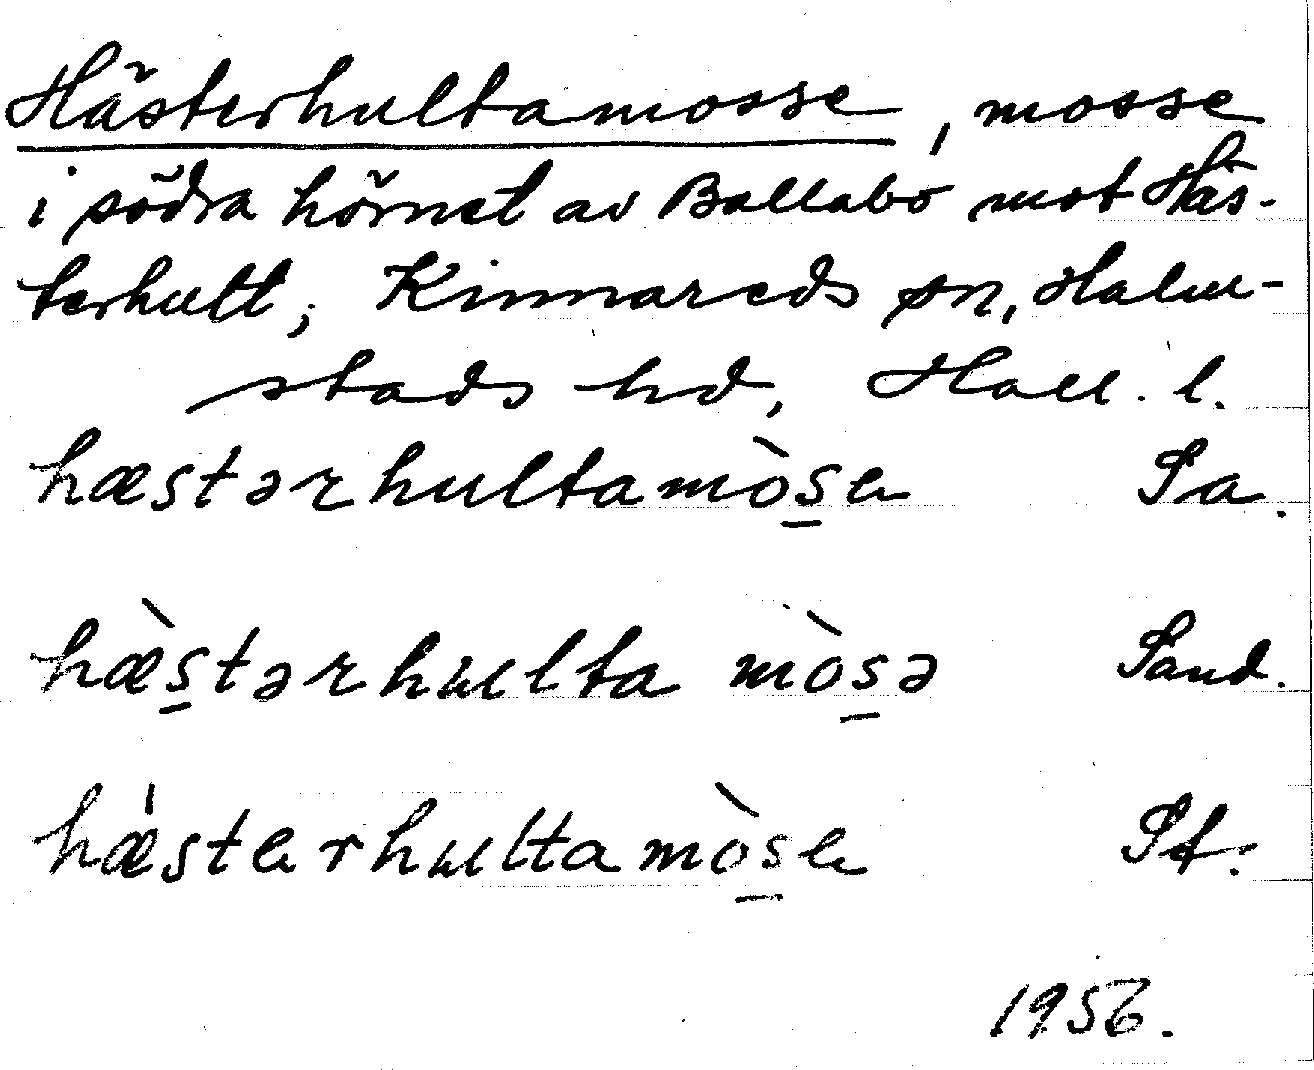 Hästerhultamosse, mosse
i södra hörnet av Ballabo mot Häs-
terhult, Kinnareds sn, Halm-
stads hd, Hall. l.
hæstərhultamòsa Sa.
hæ̀stərhulta mòsə Sand.
hæ̍starhultamòsa Sf.
1956.